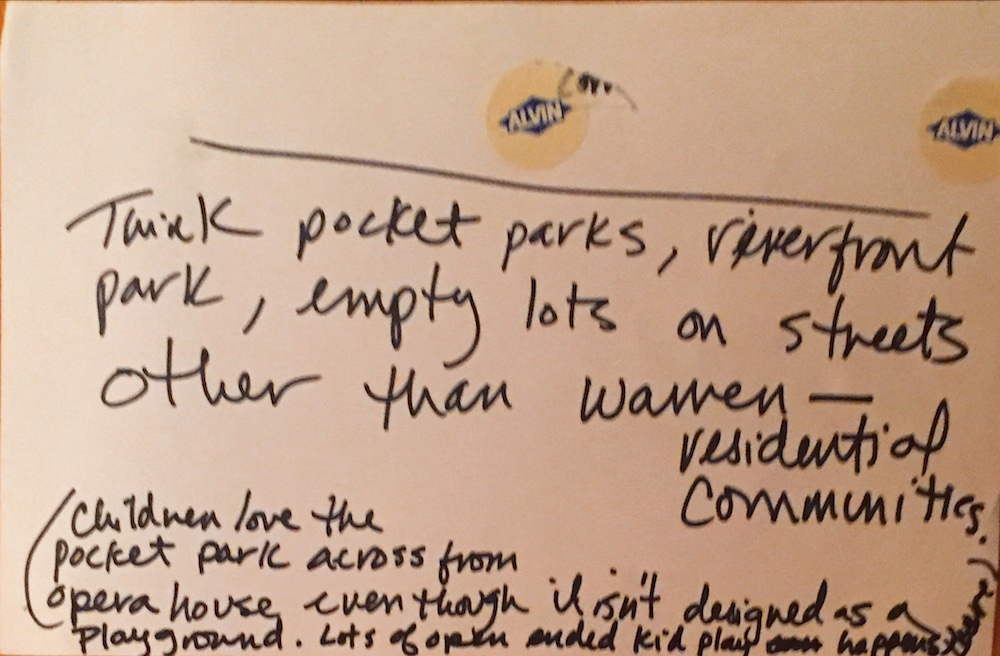 ALVIN
ALVIN
Think pocket parks, riverfront
park, empty lots on streets
other than Warren —
residential
Communities.
(Children love the
pocket park across from
opera house even though it isn't designed as a
playground. Lots of open ended kid play happens there)